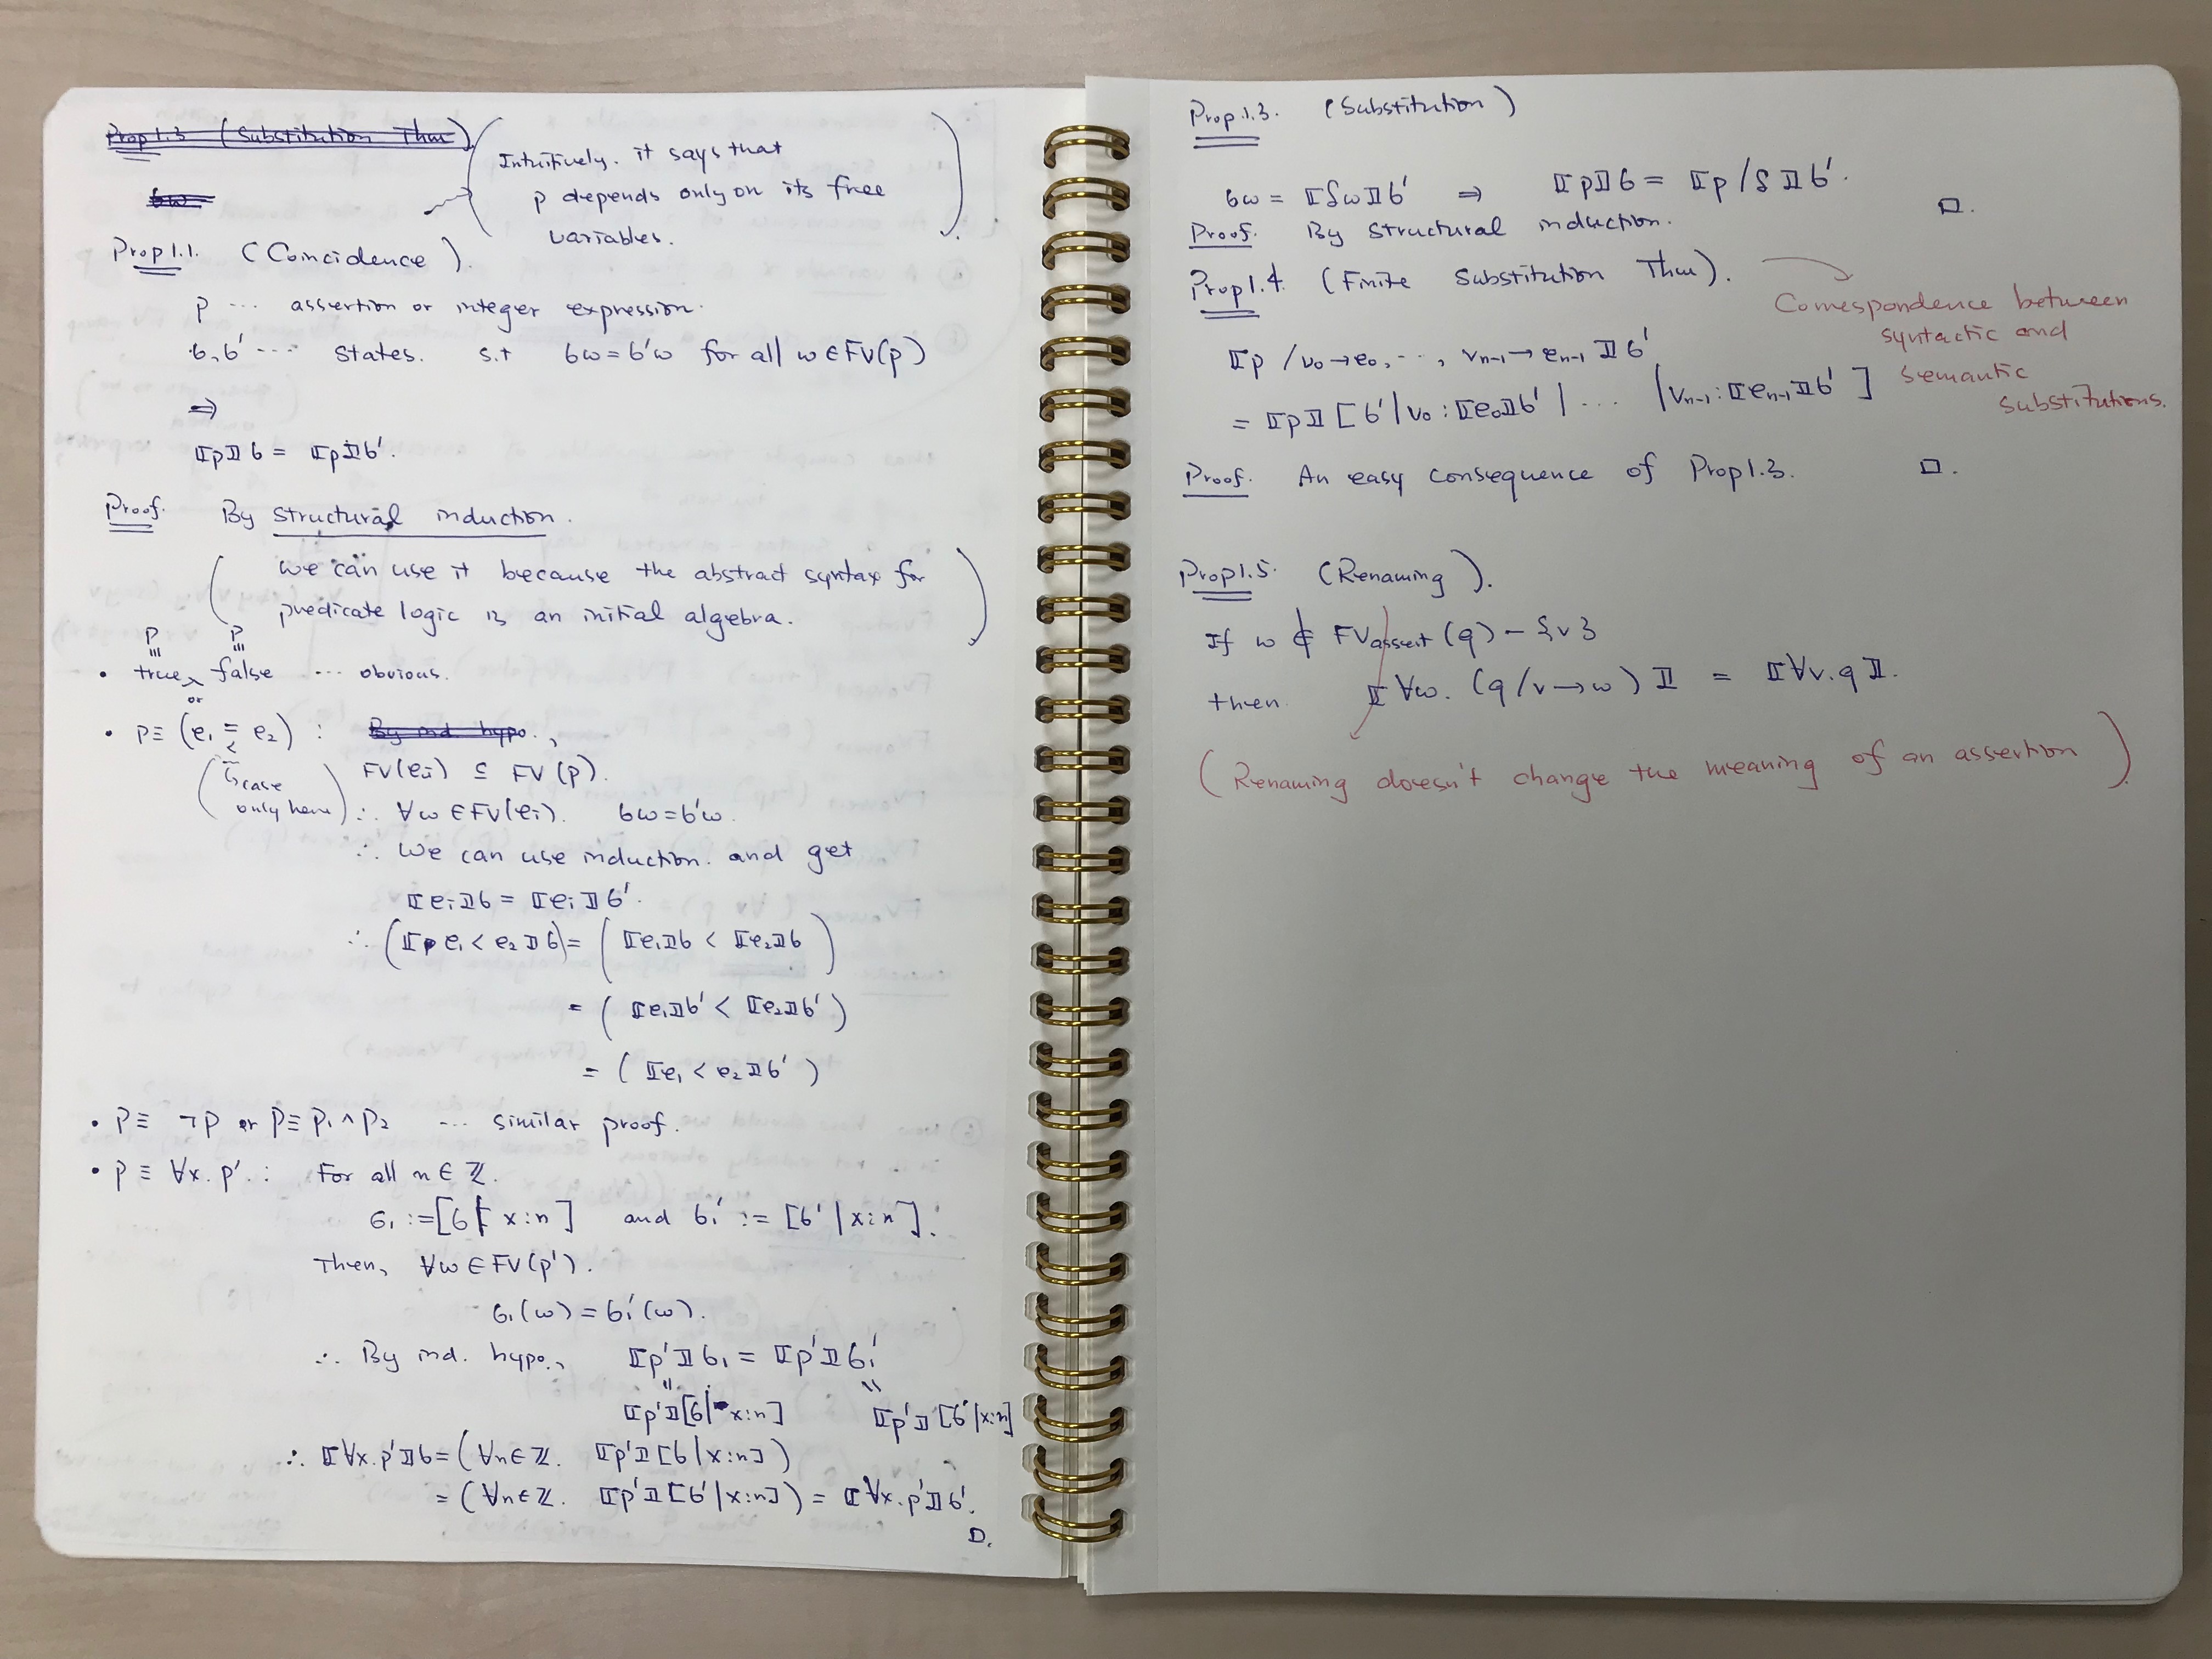 Prop 1.3 (Substitution Thm)
σw
(Intuitively. it says that
p depends only on its free
variables.)
Prop 1.1. (Coincidence).
p ... assertion or integer expression.
σ, σ' ... states. s.t σw = σ'w for all w ∈ FV(p)
⇒
⟦p⟧σ = ⟦p⟧σ'.
Proof. By structural induction.
(we can use it because the abstract syntax for
predicate logic is an initial algebra.)
p p
≡ ≡
• true, false ... obvious.
or
• p ≡ (e₁ = e₂) : By ind. hypo.,
<
(↳ case
only here)
FV(eᵢ) ⊆ FV(p).
∴ ∀w ∈ FV(eᵢ). σw = σ'w.
∴ We can use induction. and get
⟦eᵢ⟧σ = ⟦eᵢ⟧σ'.
∴ (⟦e₁ < e₂⟧σ) = (⟦e₁⟧σ < ⟦e₂⟧σ)
= (⟦e₁⟧σ' < ⟦e₂⟧σ')
= (⟦e₁ < e₂⟧σ')
• p ≡ ¬p or p ≡ p₁ ∧ p₂ ... similar proof.
• p ≡ ∀x. p'. : For all n ∈ ℤ.
σ₁ := [σ | x:n] and σ₁' := [σ' | x:n].
Then, ∀w ∈ FV(p').
σ₁(w) = σ₁'(w).
∴ By ind. hypo., ⟦p'⟧σ₁ = ⟦p'⟧σ₁'
" "
⟦p'⟧[σ| x:n] ⟦p'⟧[σ'|x:n]
∴ ⟦∀x. p'⟧σ = (∀n ∈ ℤ. ⟦p'⟧[σ|x:n])
= (∀n ∈ ℤ. ⟦p'⟧[σ'|x:n]) = ⟦∀x. p'⟧σ'.
□.
Prop 1.3. (Substitution)
σw = ⟦δw⟧σ' ⇒ ⟦p⟧σ = ⟦p/δ⟧σ'.
Proof. By structural induction. □.
Prop 1.4. (Finite Substitution Thm).
Correspondence between
syntactic and
semantic
substitutions.
⟦p / v₀→e₀, ..., vₙ₋₁→eₙ₋₁⟧σ'
= ⟦p⟧[σ' | v₀ : ⟦e₀⟧σ' | ... | vₙ₋₁ : ⟦eₙ₋₁⟧σ']
Proof. An easy consequence of Prop 1.3. □.
Prop 1.5. (Renaming).
If w ∉ FV_assert(q) − {v}
then. ⟦∀w. (q/v→w)⟧ = ⟦∀v. q⟧.
(Renaming doesn't change the meaning of an assertion).